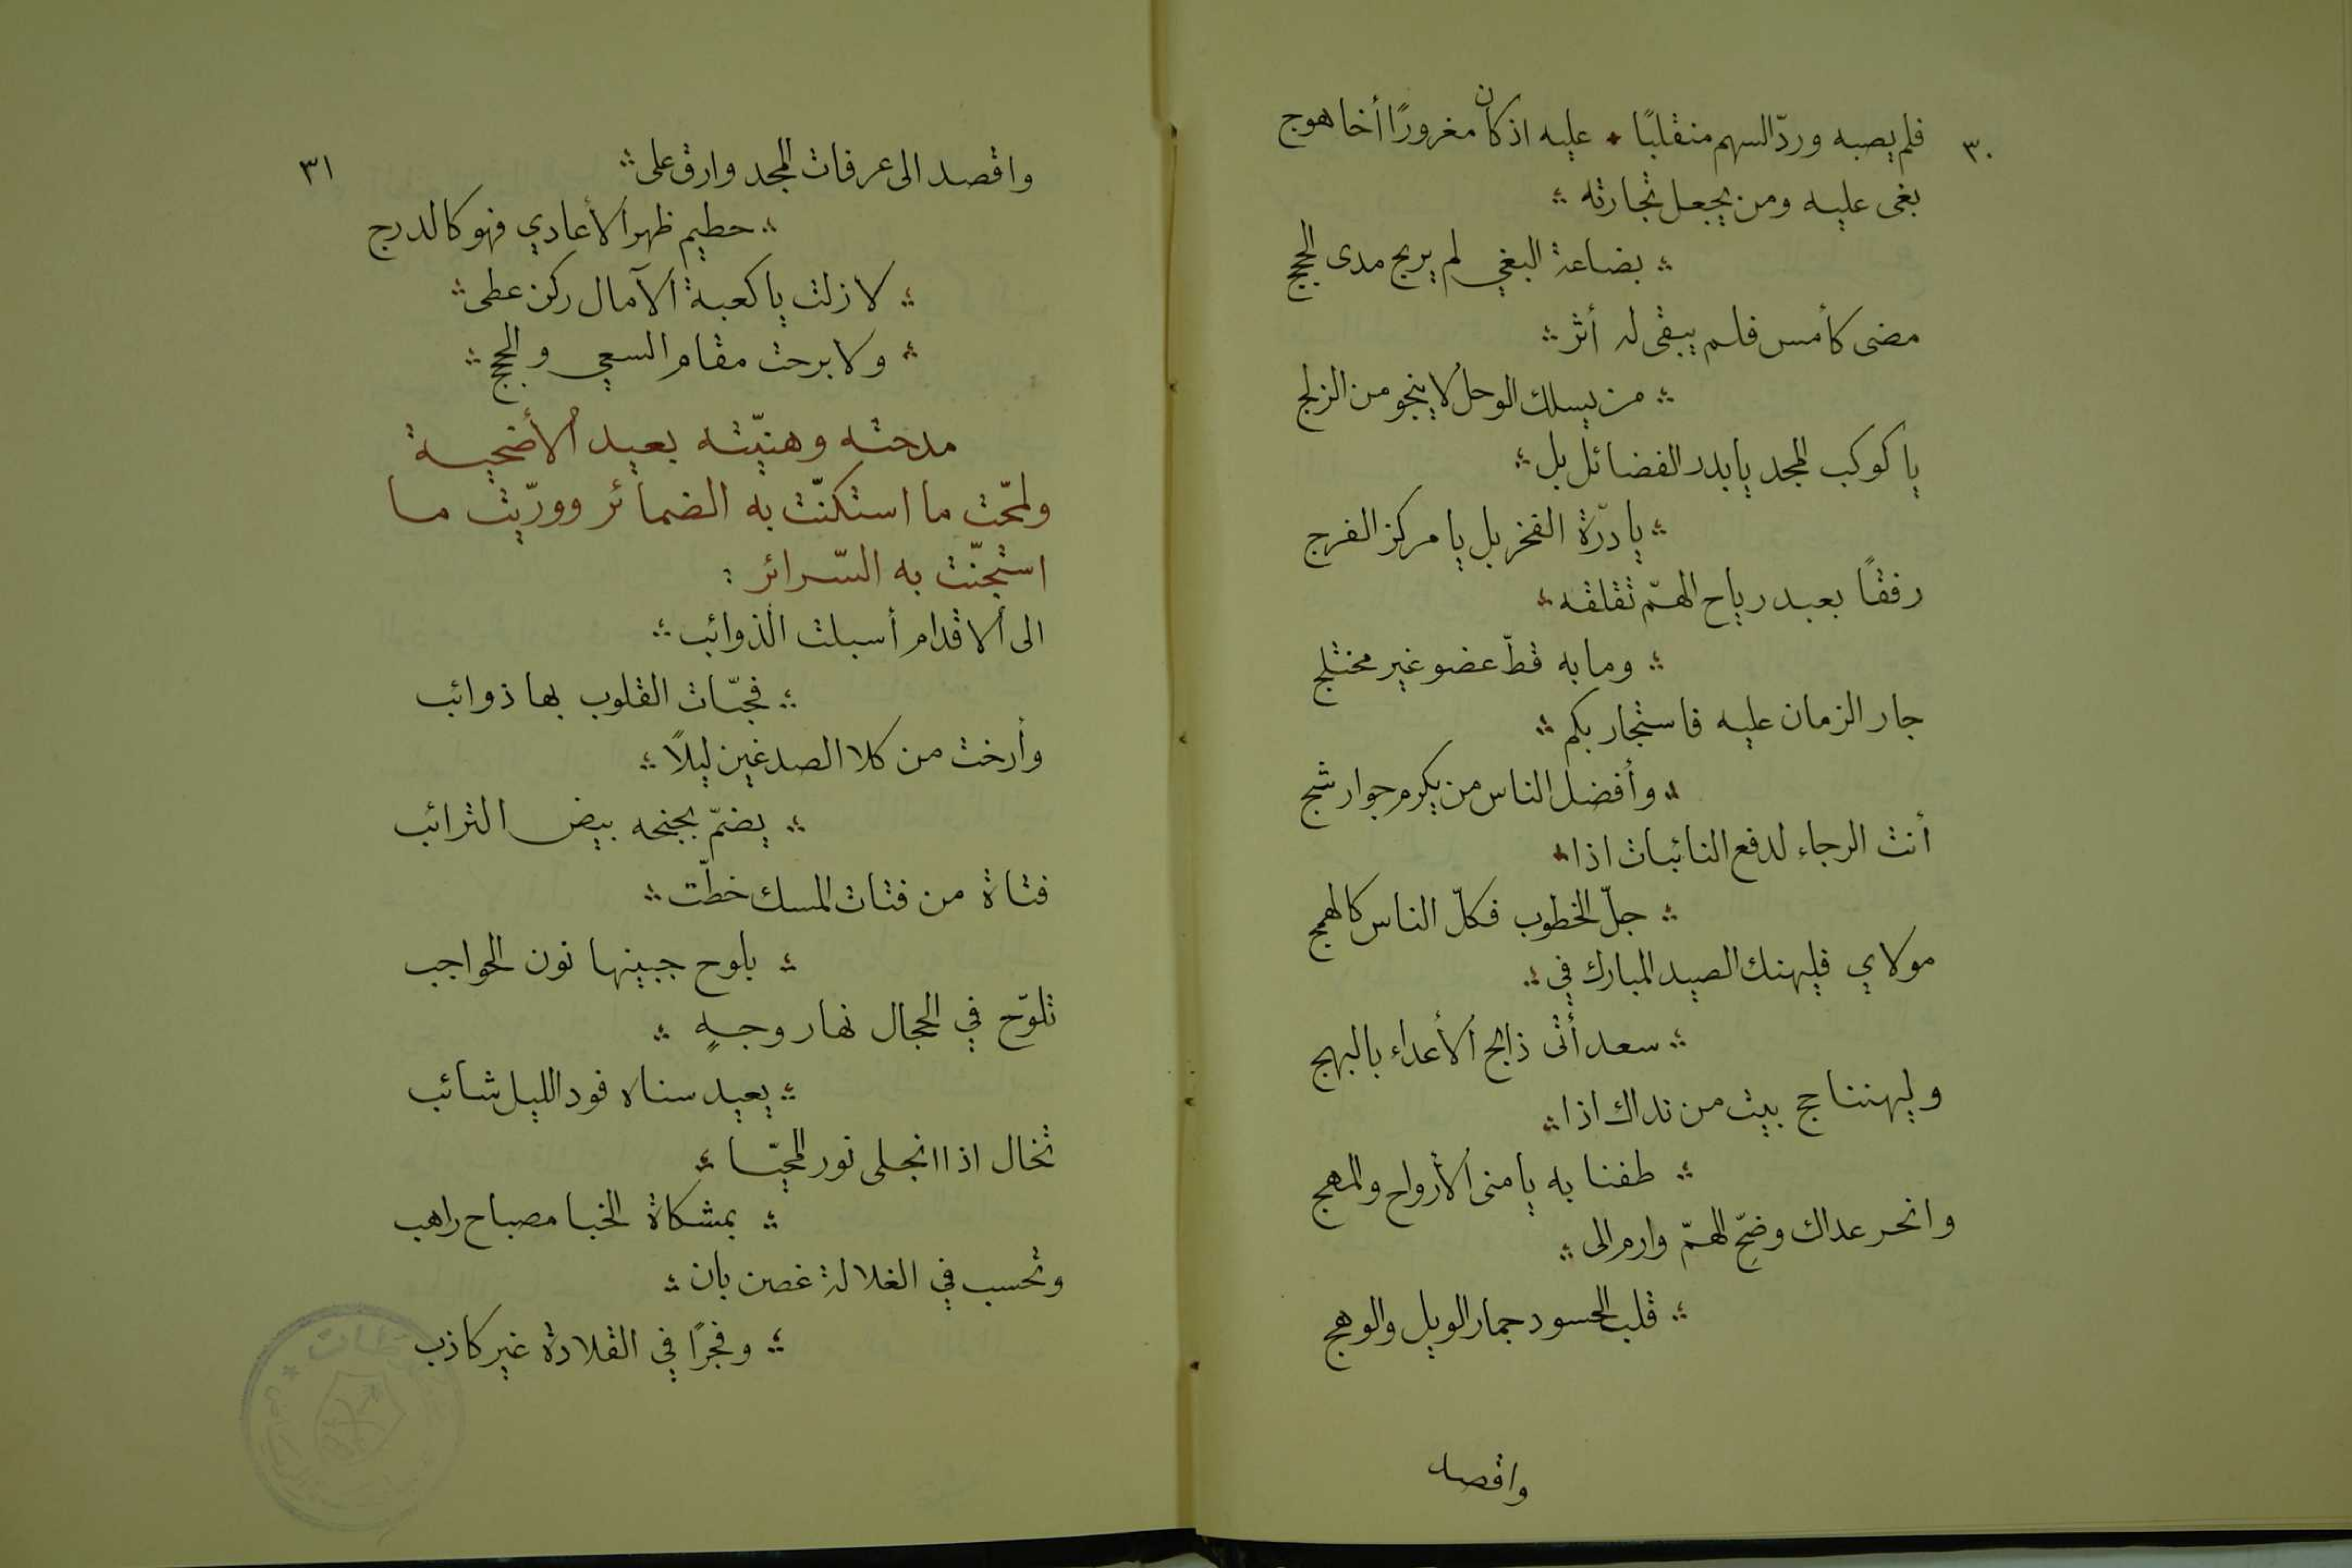 ٣٠
فلم يصبه وردّ السهم منقلبًا ؞ عليه اذ كان مغرورًا أخا هوج
بغى عليه ومن يجعل تجارته ؞
؞ بضاعة البغي لم يربح مدى الحجج
مضى كأمس فلم يبقى له أثر ؞
؞ من يسلك الوحل لا ينجو من الزلج
يا كوكب المجد يا بدر الفضائل بل ؞
؞ يا درّة الفخر بل يا مركز الفرج
رفقًا بعبد رياح الهمّ تقلقه ؞
؞ وما به قطّ عضو غير مختلج
جار الزمان عليه فاستجار بكم ؞
؞ وأفضل الناس من يكرم جوار شج
أنت الرجاء لدفع النائبات اذا ؞
؞ جلّ الخطوب فكلّ الناس كالهمج
مولاي فليهنك الصيد المبارك في ؞
؞ سعد أتى ذابح الأعداء بالبهج
وليهننا حج بيت من نداك اذا ؞
؞ طفنا به يا منى الأرواح والمهج
وانحر عداك وضحّ الهمّ وارم الى ؞
؞ قلب الحسود جمار الويل والوهج
واقصد
٣١
واقصد الى عرفات المجد وارق على ؞
؞ حطيم ظهر الأعادي فهو كالدرج
؞ لا زلت يا كعبة الآمال ركن عطى ؞
؞ ولا برحت مقام السعي والحجج ؞
مدحته وهنيّته بعيد الأضحية
ولمّحت ما استكنّت به الضمائر وورّيت ما
استجنّت به السّرائر :
الى الاقدام أسبلت الذوائب ؞
؞ فحبّات القلوب بها ذوائب
وأرخت من كلا الصدغين ليلًا ؞
؞ يضمّ بجنحه بيض الترائب
فتاة من فتات المسك خطّت ؞
؞ بلوح جبينها نون الحواجب
تلوّح في الحجال نهار وجهٍ ؞
؞ يعيد سناه فود الليل شائب
تخال اذا انجلى نور المحيّا ؞
؞ بمشكاة الخبا مصباح راهب
وتحسب في الغلالة غصن بان ؞
؞ وفجرًا في القلادة غير كاذب